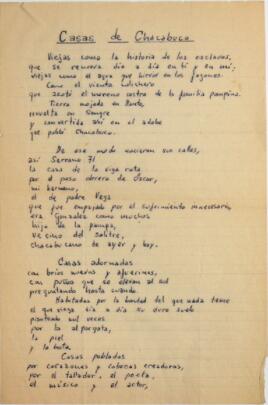 Casas de Chacabuco
Viejas como la historia de los esclavos,
que se renueva día a día en ti y en mí,
viejas como el agua que hierve en los fogones.
Como el viento salitrero
que azotó el moreno rostro de la familia pampina.
Tierra mojada en llanto,
envuelta en sangre
y convertida ahí en el adobe
que pobló Chacabuco.
De ese modo nacieron sus calles,
así Serrano 71
la casa de la viga rota
por el paso obrero de Oscar,
mi hermano,
el de padre Vega
que fue empujado por el sufrimiento innecesario,
era González como muchos
hijo de la pampa,
vecino del salitre,
chacabucano de ayer y hoy.
Casas adornadas
con bríos nuevos y
con puños que se elevan al sol
preguntando hasta cuando.
Habitadas por la bondad del que nada teme
el que viaja día a día su duro suelo
pisoteado mil veces
por la alpargata,
la piel
y la bota.
Casas pobladas
por corazones y cabezas creadoras,
por el tallador, el poeta,
el músico y el actor,